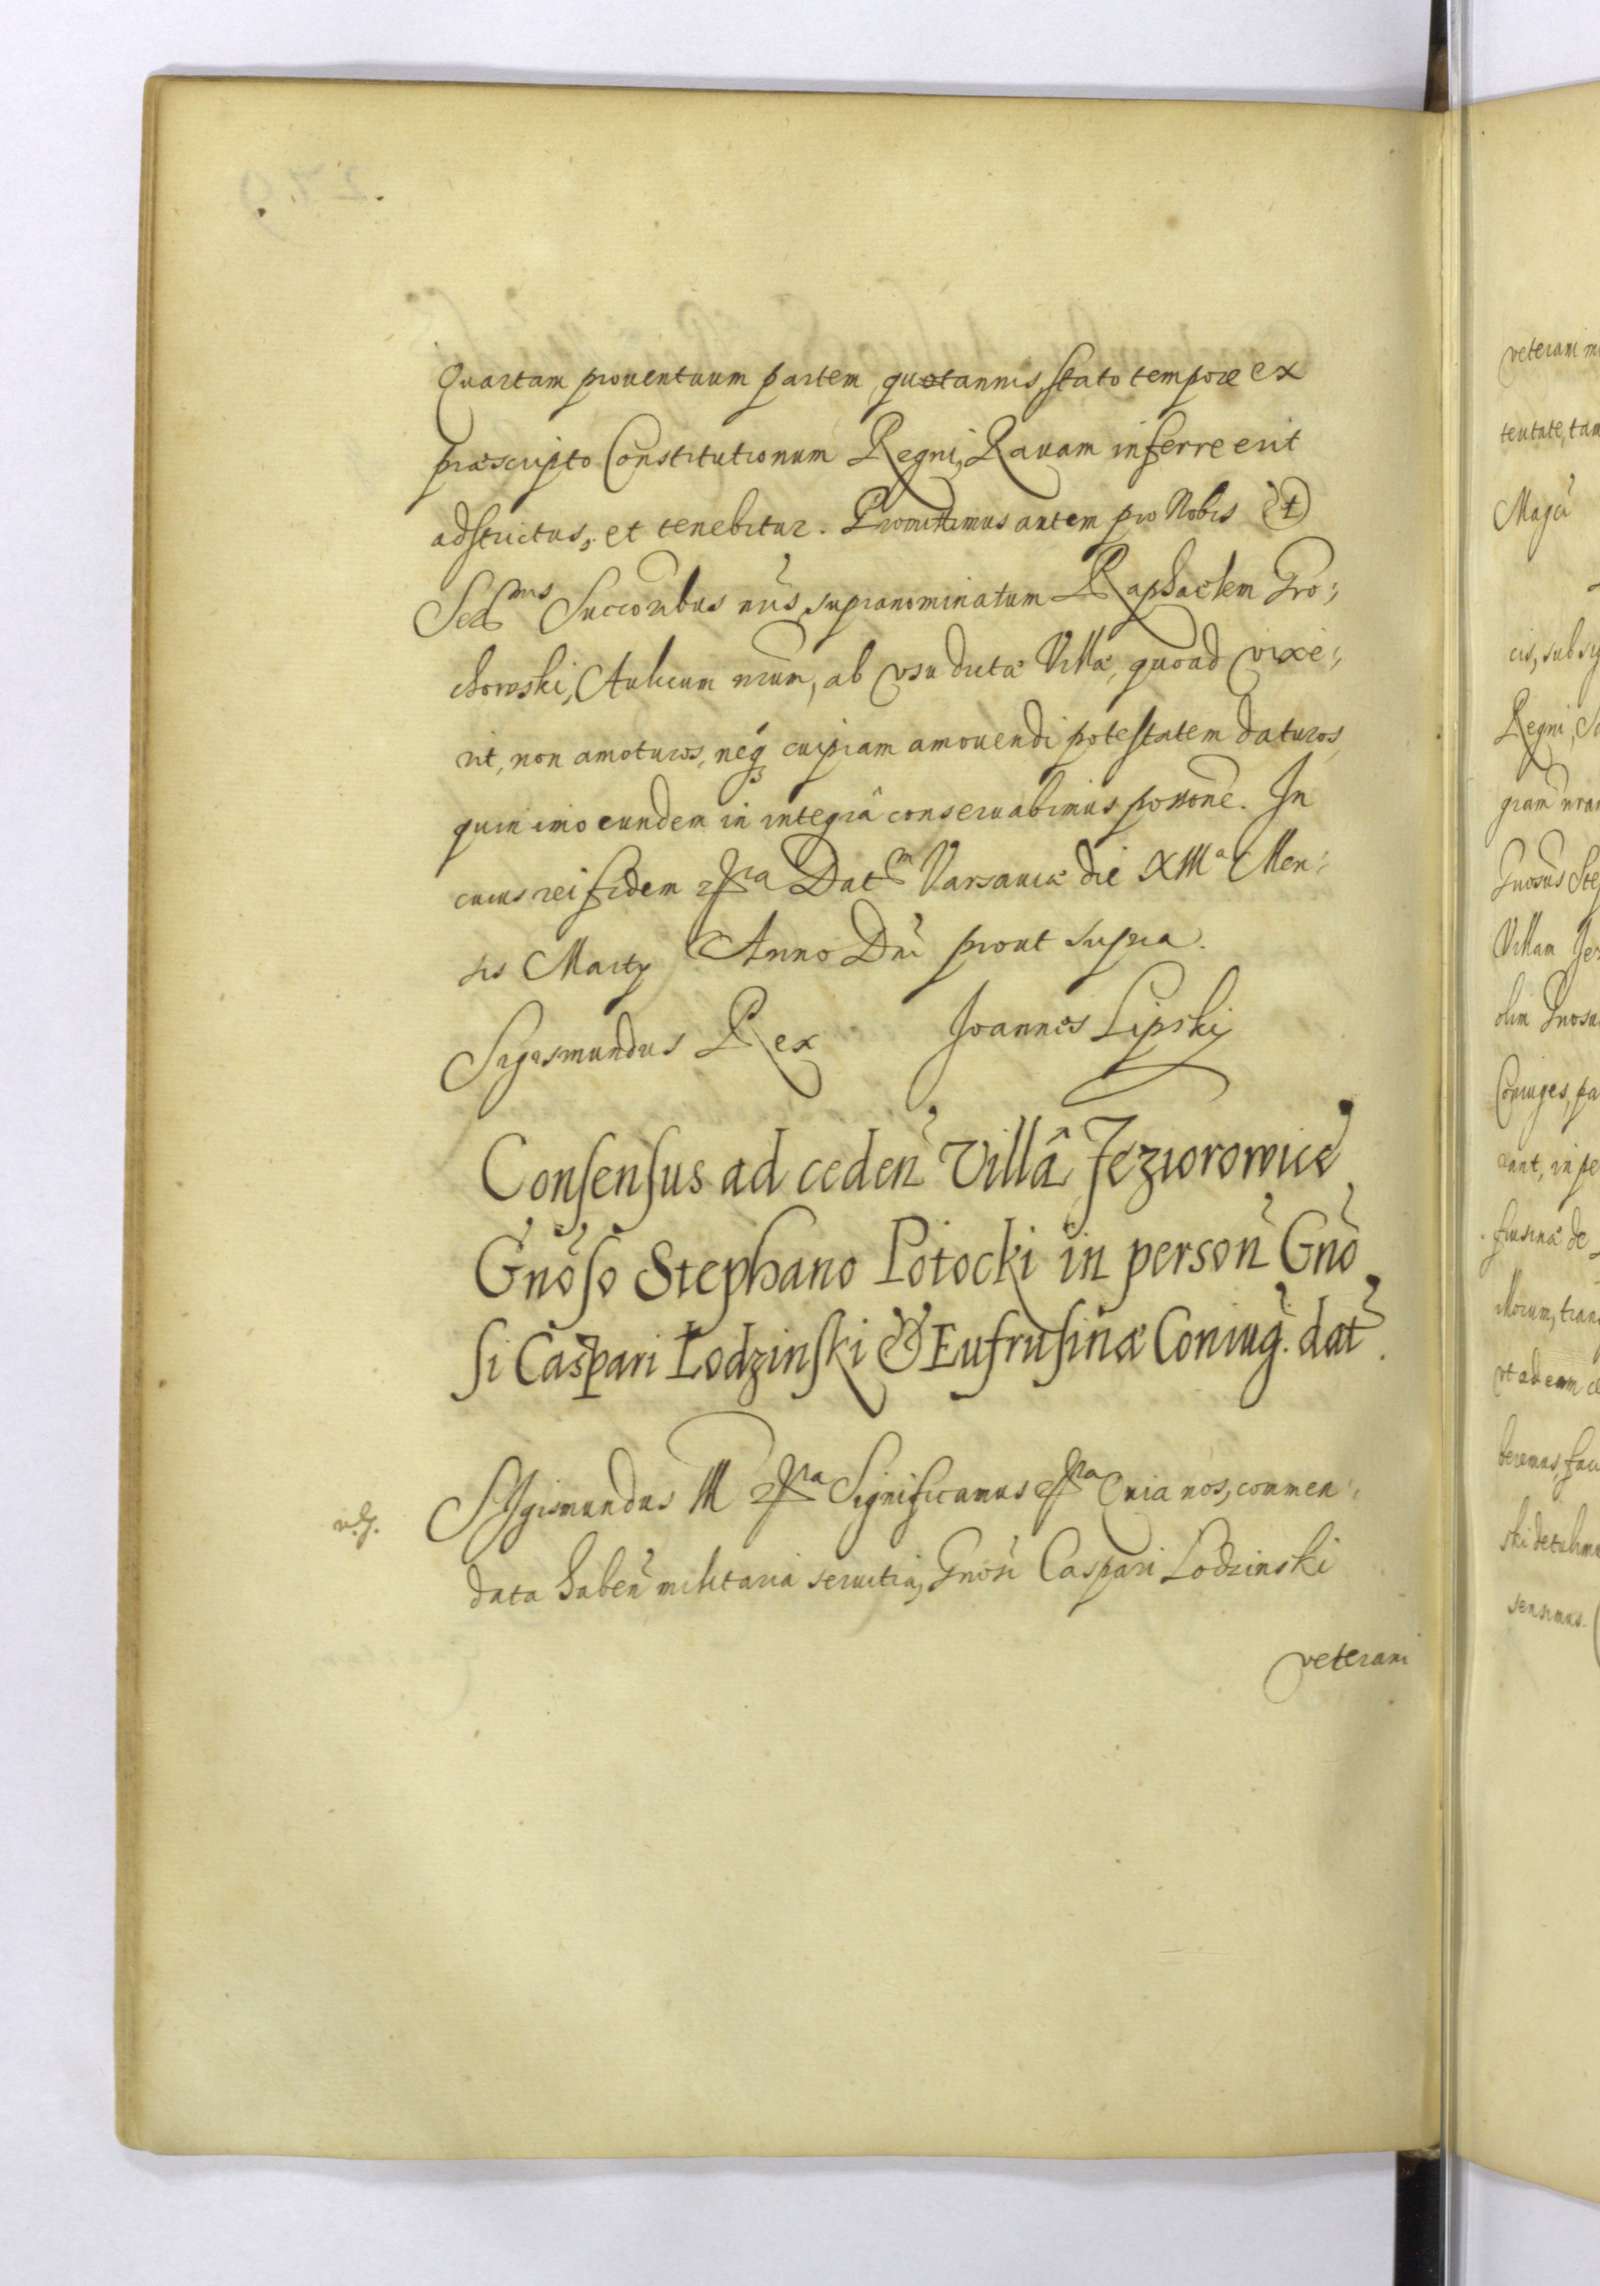 Quartam prouentuum partem, quotannis, stato tempore ex
præscripto Constitutionum Regni, Rauam inferre erit
adstrictus, et tenebitur. Promittimus autem pro Nobis et
Ser̃mis Succoribus nr̃is, supranominatum Raphaelem Gro:
chowski, Aulicum nrũm, ab vsu dictæ Villæ, quoad vixe:
rit, non amoturos, neq cuipiam amouendi potestatem daturos,
quin imo eundem in integrâ conseruabimus possonẽ. In
cuius rei fidem etc̃ra Datm Varsauiæ die XIIIa Men:
sis Martij Anno Dnĩ prout supra.
Sigismundus Rex Joannes Lipskj
Consensus ad ceden̄ Villâ Jeziorowice
Gnõso Stephano Potocki in person̄ Gnõ
si Caspari Lodzinski & Eufrusinæ Coniug. dat̄.
n. g.
Sygismundus III etc̃ra Significamus etc̃ra Quia nos, commen:
data haben̄ militaria seruitia, Gnosi Caspari Lodzinski
veterani
veterani
tentate, tam
cis, sub
Regni,
Villam
olim
Coniuges, pa
rant, in pe
frusinæ de
vt ad eam